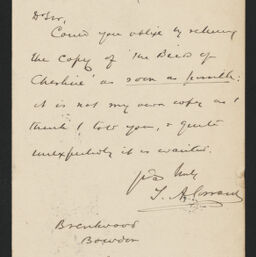 Dr Sir,
Could you oblige by returning
the copy of 'The Birds of
Cheshire' as soon as possible;
it is not my own copy as I
think I told you, & quite
unexpectedly it is wanted.
yrs truly
T. A. Coward
Brentwood
Bowdon